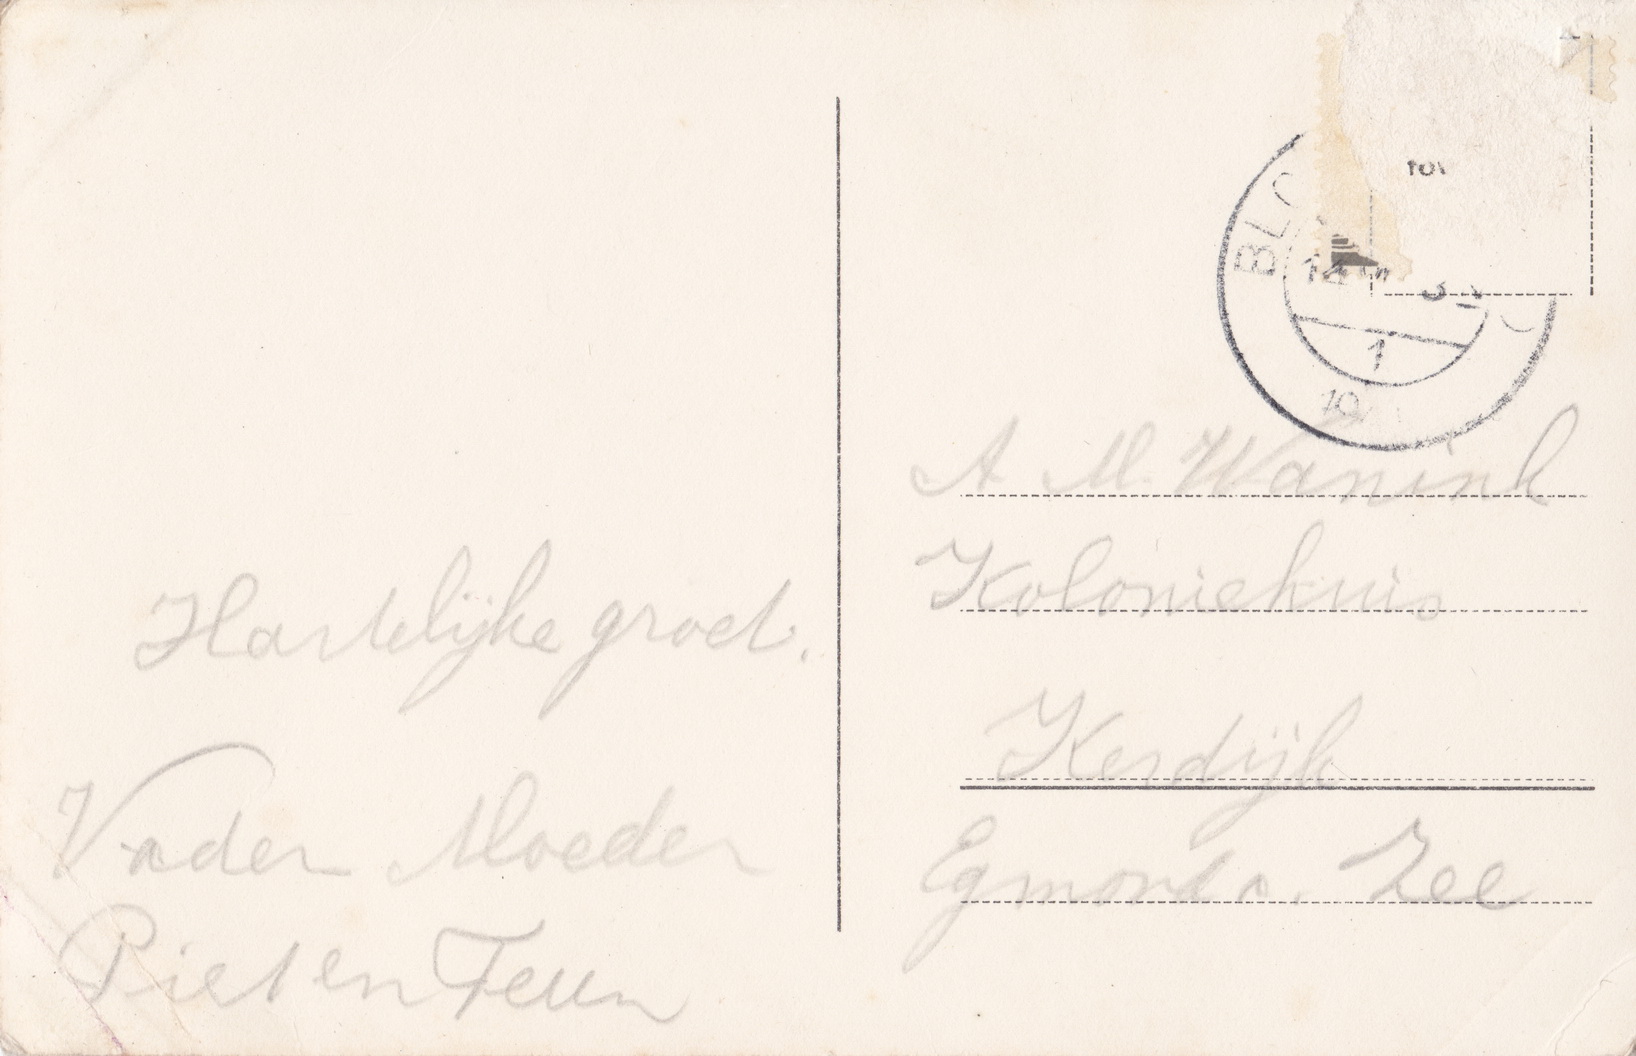 Hartelijke groet.
Vader Moeder
Piet en Teun
BLO
1
A M. Wanink
Koloniehuis
Kerdijk
Egmond a. Zee